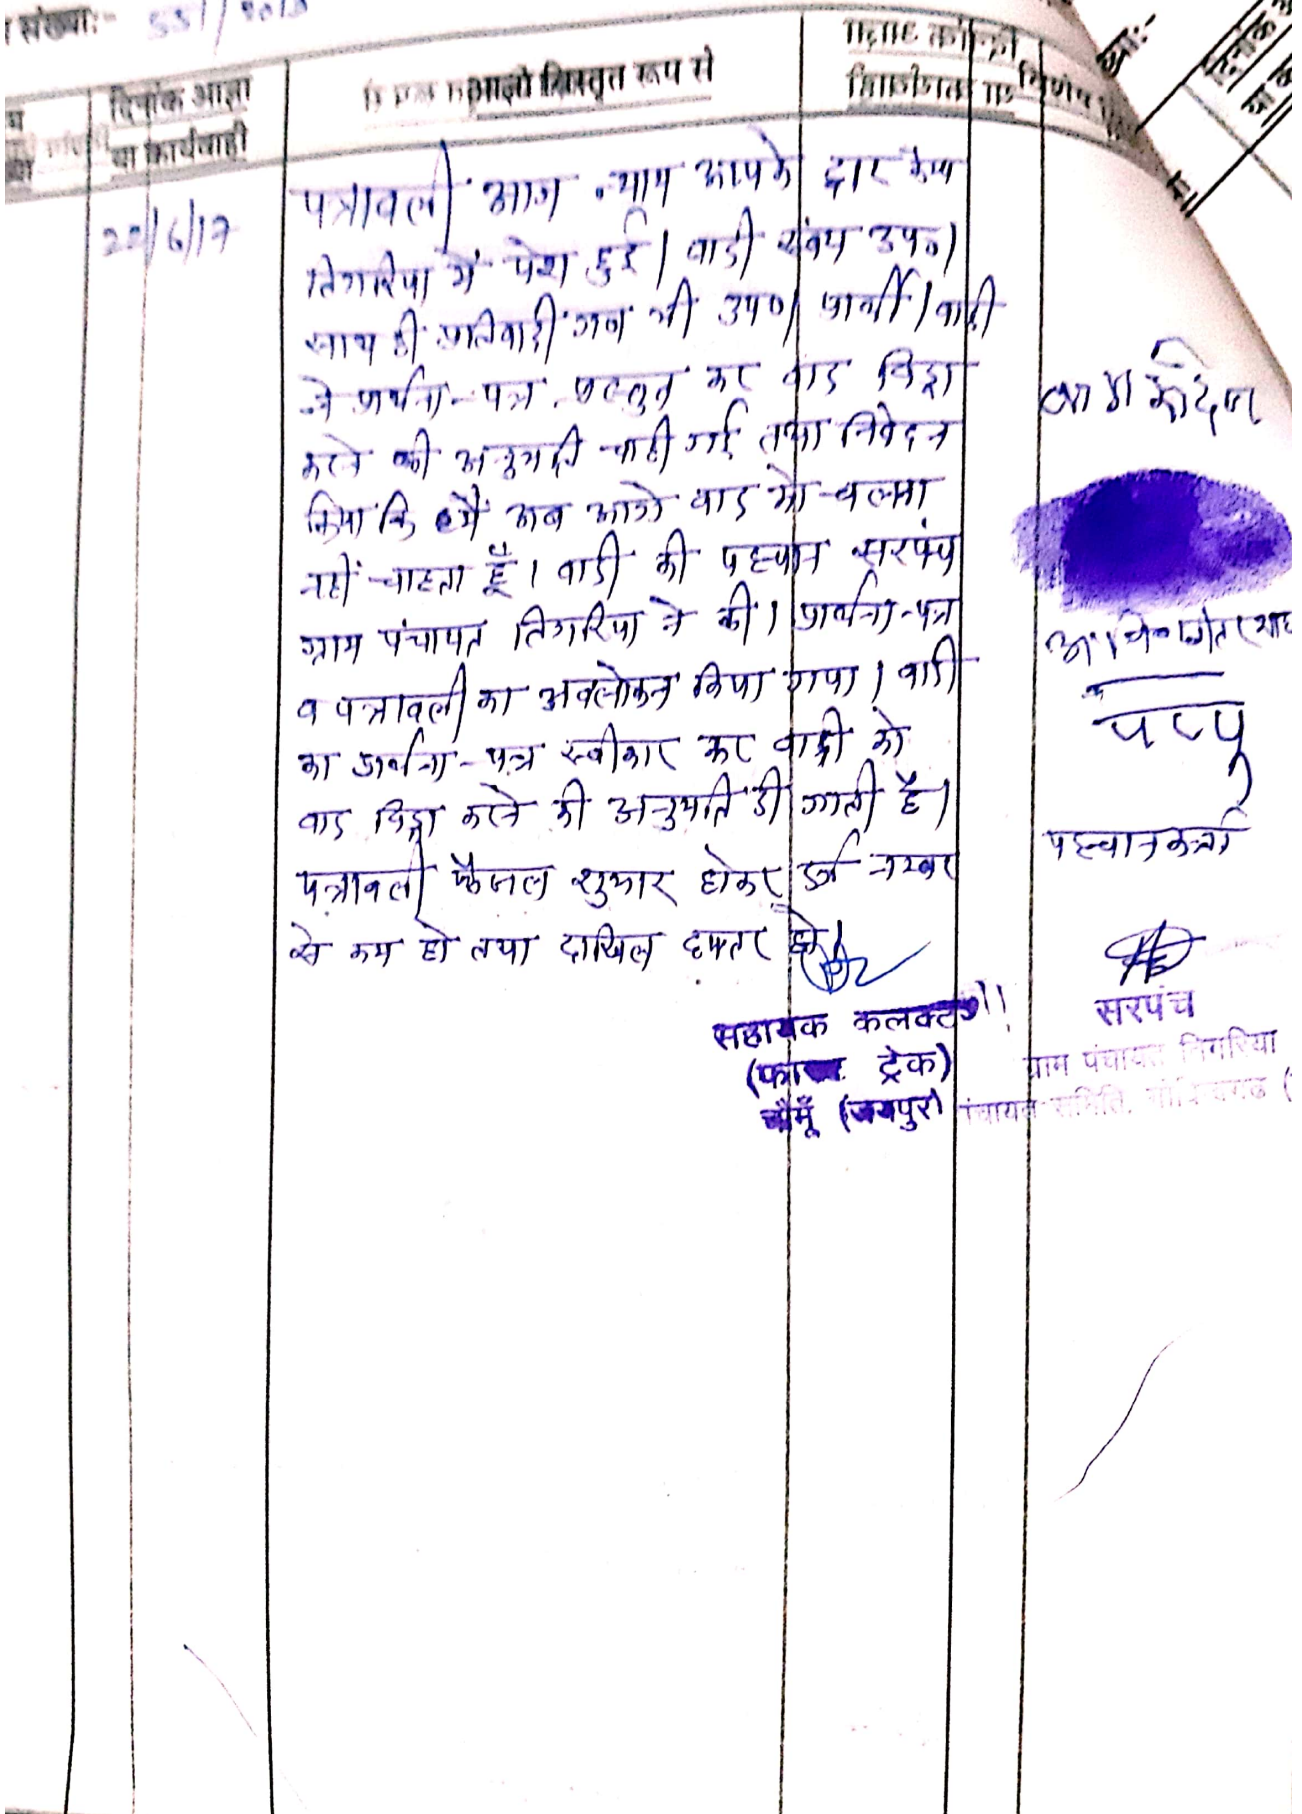 संख्या:- 551/2013
दिनांक आज्ञा
या कार्यवाही
आज्ञा विस्तृत रूप से
22/6/17
पत्रावली आज न्याय आपके द्वार कैम्प
तिगरिया में पेश हुई। वादी स्वंय उप०।
साथ ही प्रतिवादी गण भी उप०। प्रार्थी/वादी
ने प्रार्थना-पत्र प्रस्तुत कर वाद विड्रा
करने की अनुमती चाही गई तथा निवेदन
किया कि मैं अब आगे वाद को चलाना
नहीं चाहता हूँ। वादी की पहचान सरपंच
ग्राम पंचायत तिगरिया ने की। प्रार्थना-पत्र
व पत्रावली का अवलोकन किया गया। वादी
का प्रार्थना-पत्र स्वीकार कर वादी को
वाद विड्रा करने की अनुमति दी जाती है।
पत्रावली फैसल शुमार होकर दर्ज नम्बर
से कम हो तथा दाखिल दफ्तर हो।
सहायक कलक्टर
(फास्ट ट्रेक)
चौमूँ (जयपुर)
पप्पु
पहचानकर्ता
सरपंच
ग्राम पंचायत तिगरिया
पंचायत समिति, गोविन्दगढ